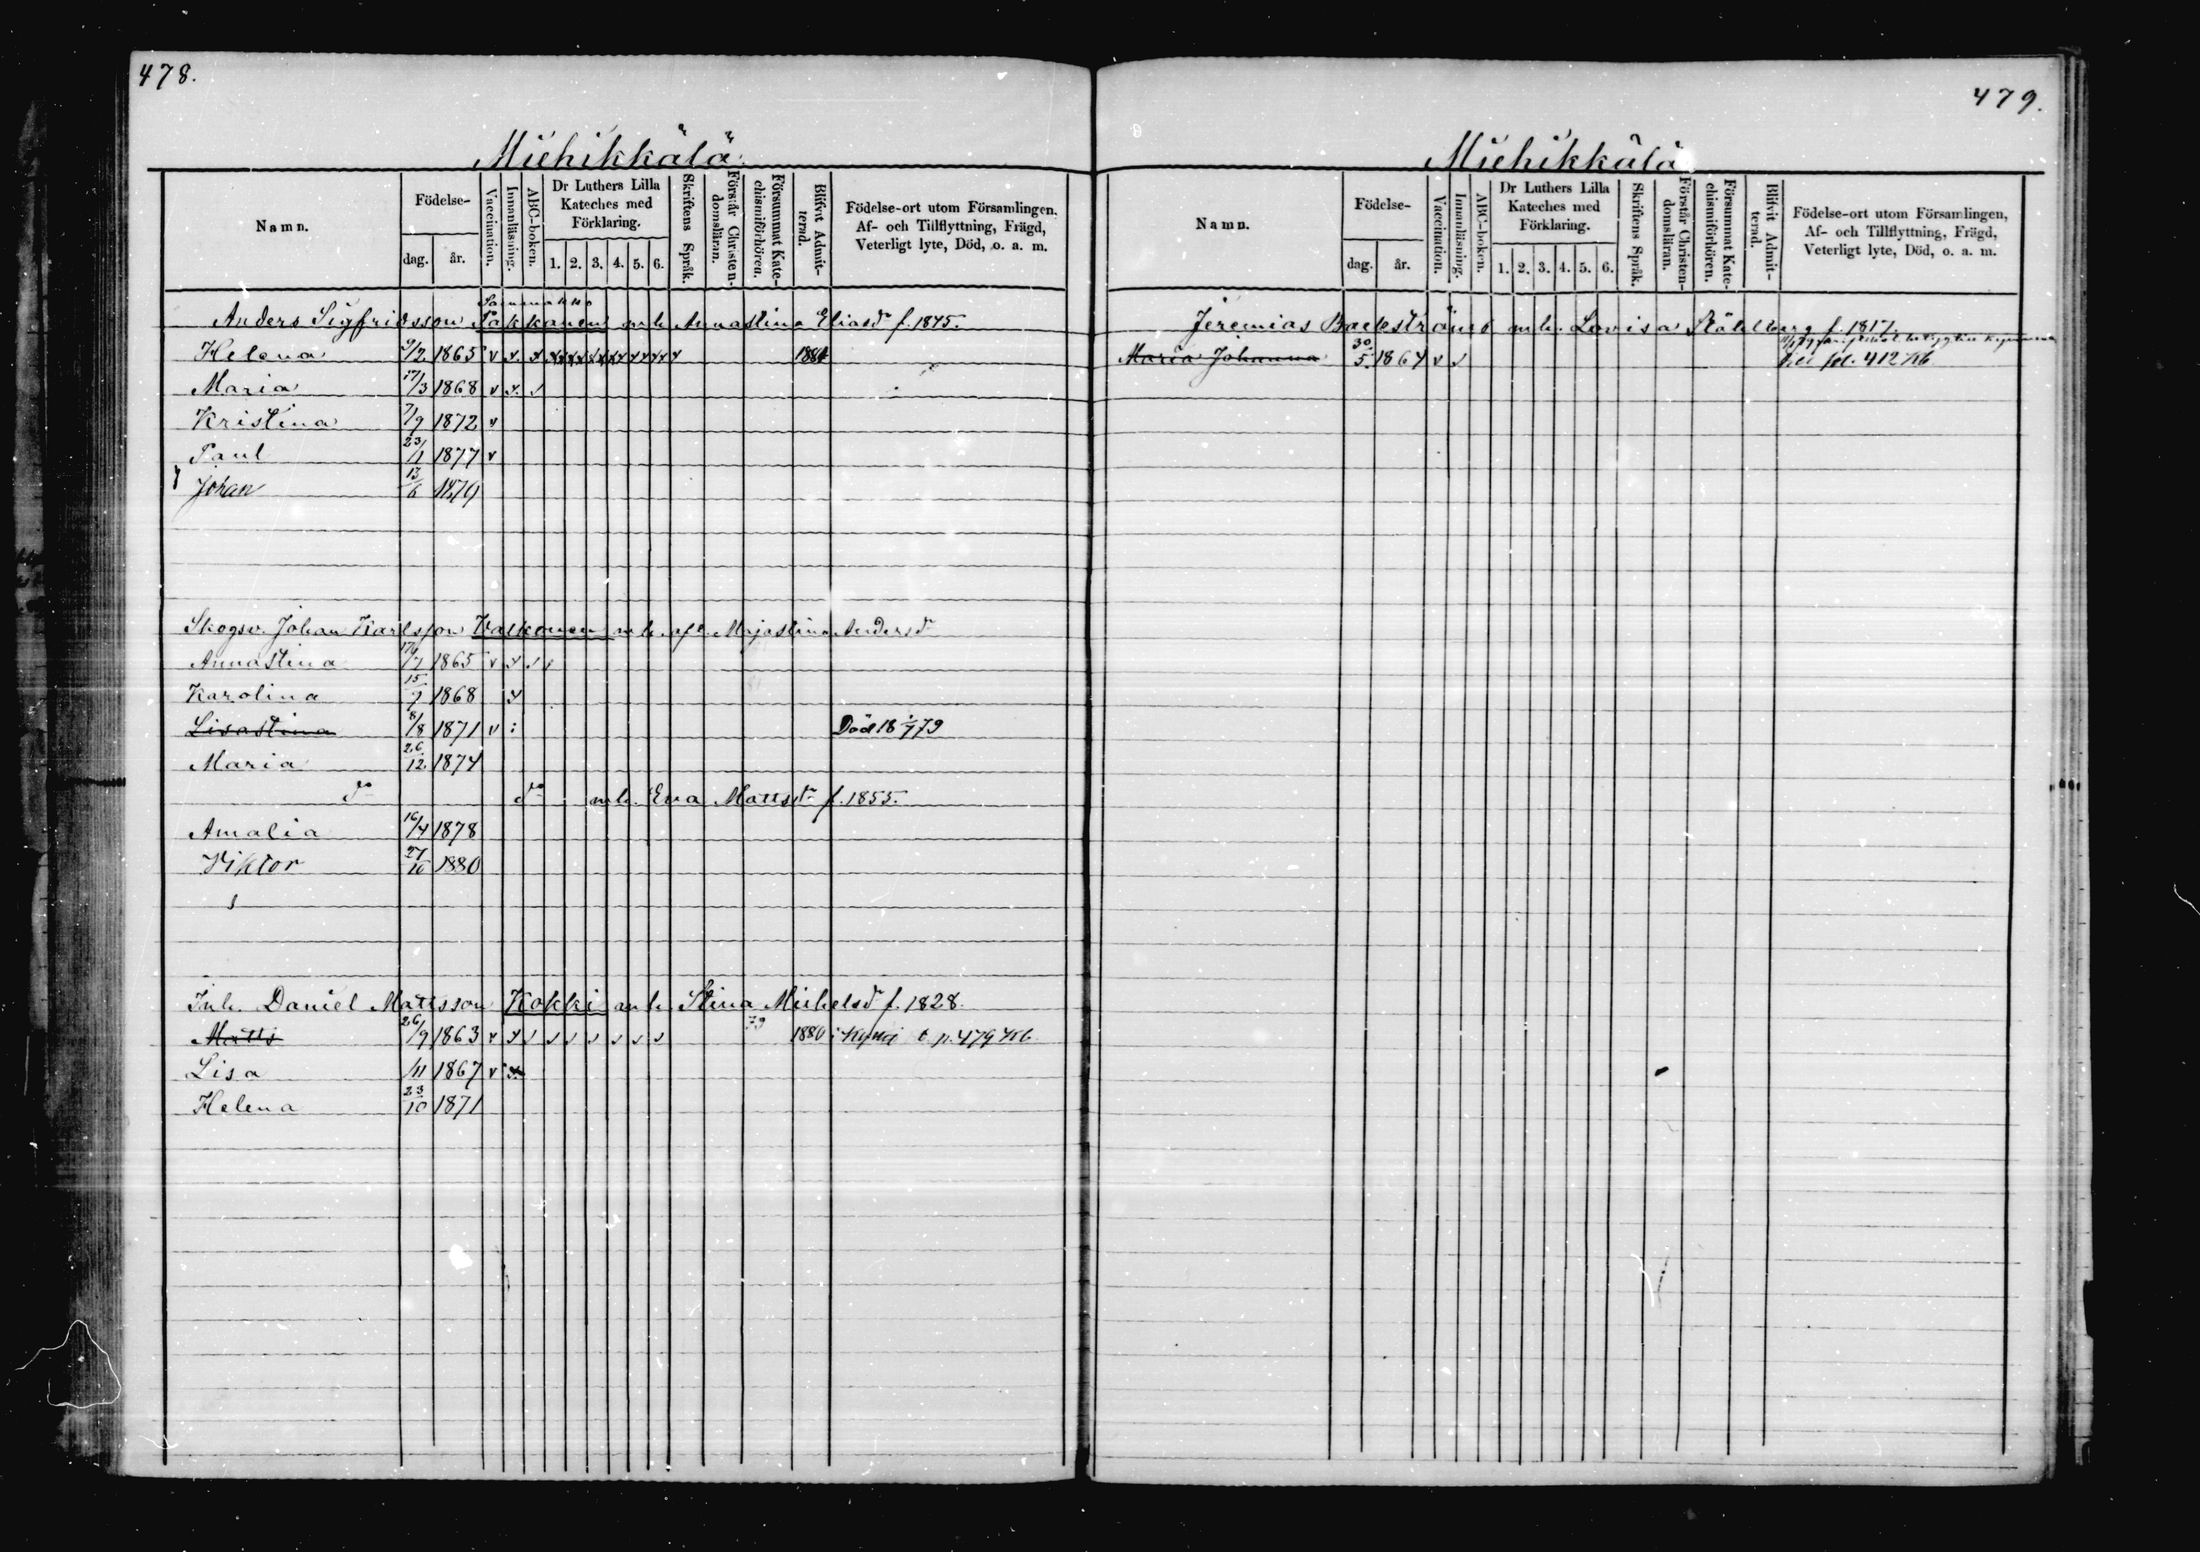 478.
Miehikkälä
Namn. Födelse- dag. år. Vaccination. Innanläsning. ABC-boken. Dr Luthers Lilla Kateches med Förklaring. 1. 2. 3. 4. 5. 6. Skriftens Språk. Förstår Christendomsläran. Försummat Katechismiförhören. Blifvit Admitterad. Födelse-ort utom Församlingen, Af- och Tillflyttning, Frägd, Veterligt lyte, Död, o. a. m.
Anders Sigfridsson Pakkanen m. h. Annastina Eliasdr f. 1845.
Helena 9/2 1865 v x x 1881
Maria 17/3 1868 v x
Kristina 7/9 1872 v
Paul 23/1 1877 v
Johan 13/6 1879
Skogsv. Johan Karlsson Valkonen m. h. afl. Majastina Andersdr
Annastina 1865 v x
Karolina 15/9 1868 x
Lisastina 8/8 1871 v Död 18 79
Maria 26/12 1874
do do m. h. Eva Mattsdr f. 1855.
Amalia 16/4 1878
Viktor 27/10 1880
Inh. Daniel Mattsson Kokki m. h. Stina Michelsdr f. 1828.
Matts 26/9 1863 v x 79 1880 p. 479 KB
Lisa /11 1867 v x
Helena 23/10 1871
479.
Miehikkälä
Namn. Födelse- dag. år. Vaccination. Innanläsning. ABC-boken. Dr Luthers Lilla Kateches med Förklaring. 1. 2. 3. 4. 5. 6. Skriftens Språk. Förstår Christendomsläran. Försummat Katechismiförhören. Blifvit Admitterad. Födelse-ort utom Församlingen, Af- och Tillflyttning, Frägd, Veterligt lyte, Död, o. a. m.
Jeremias Backström m. h. Lovisa Ståhlberg f. 1817.
Maria Johanna 30/5 1864 v fol. 412 KB